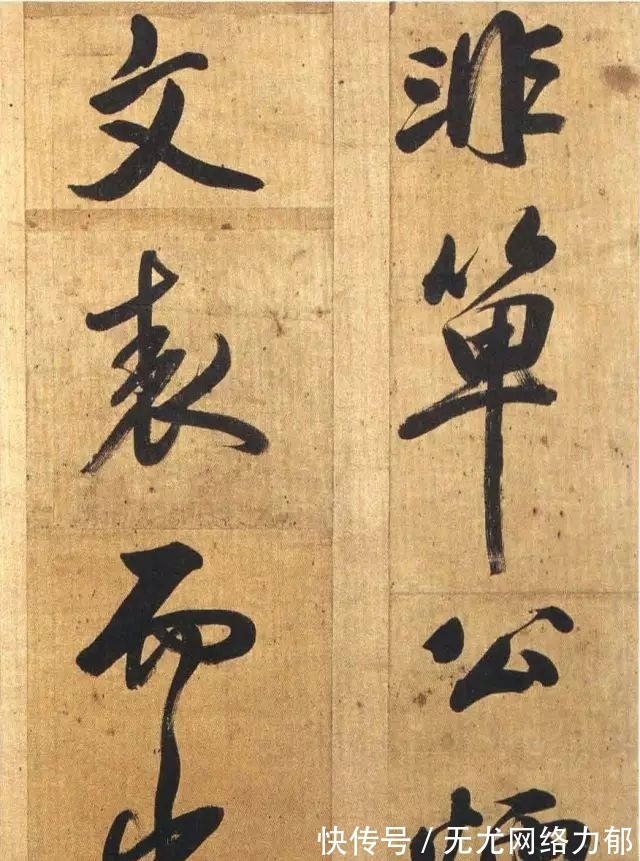 非單公
文表而
快传号 / 无尤网络力郁